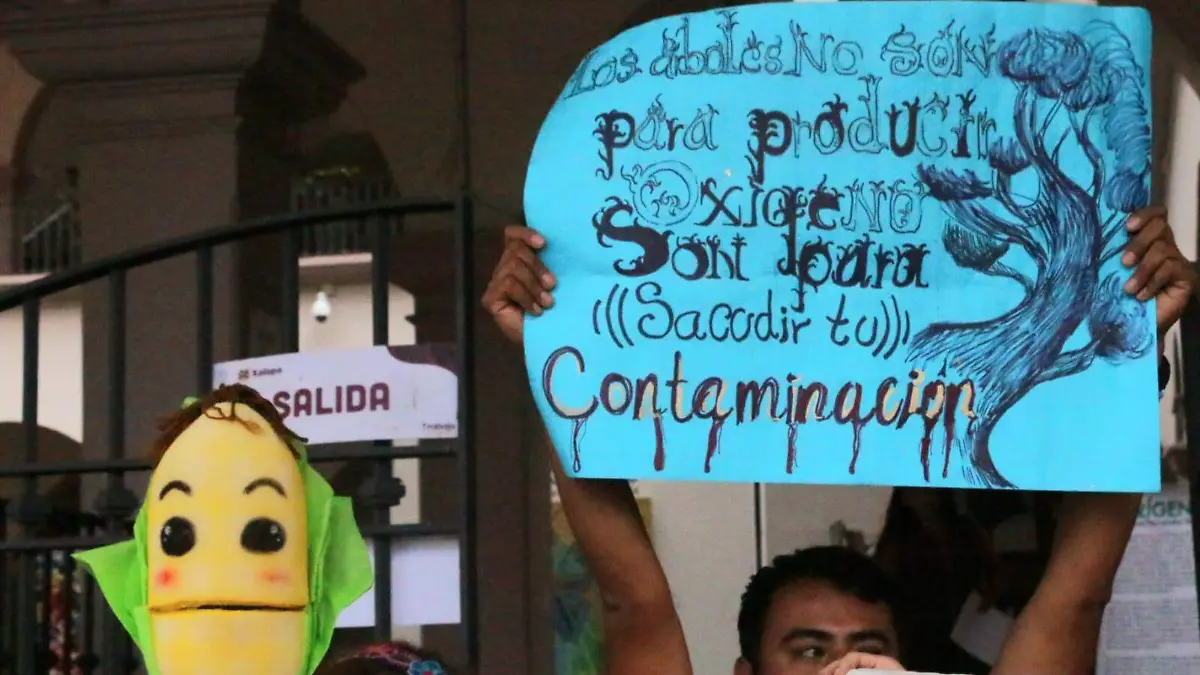 Los árboles No SÓN
para producir
OxigeNO
Son para
(((Sacudir tu)))
Contaminación
Xalapa
SALIDA